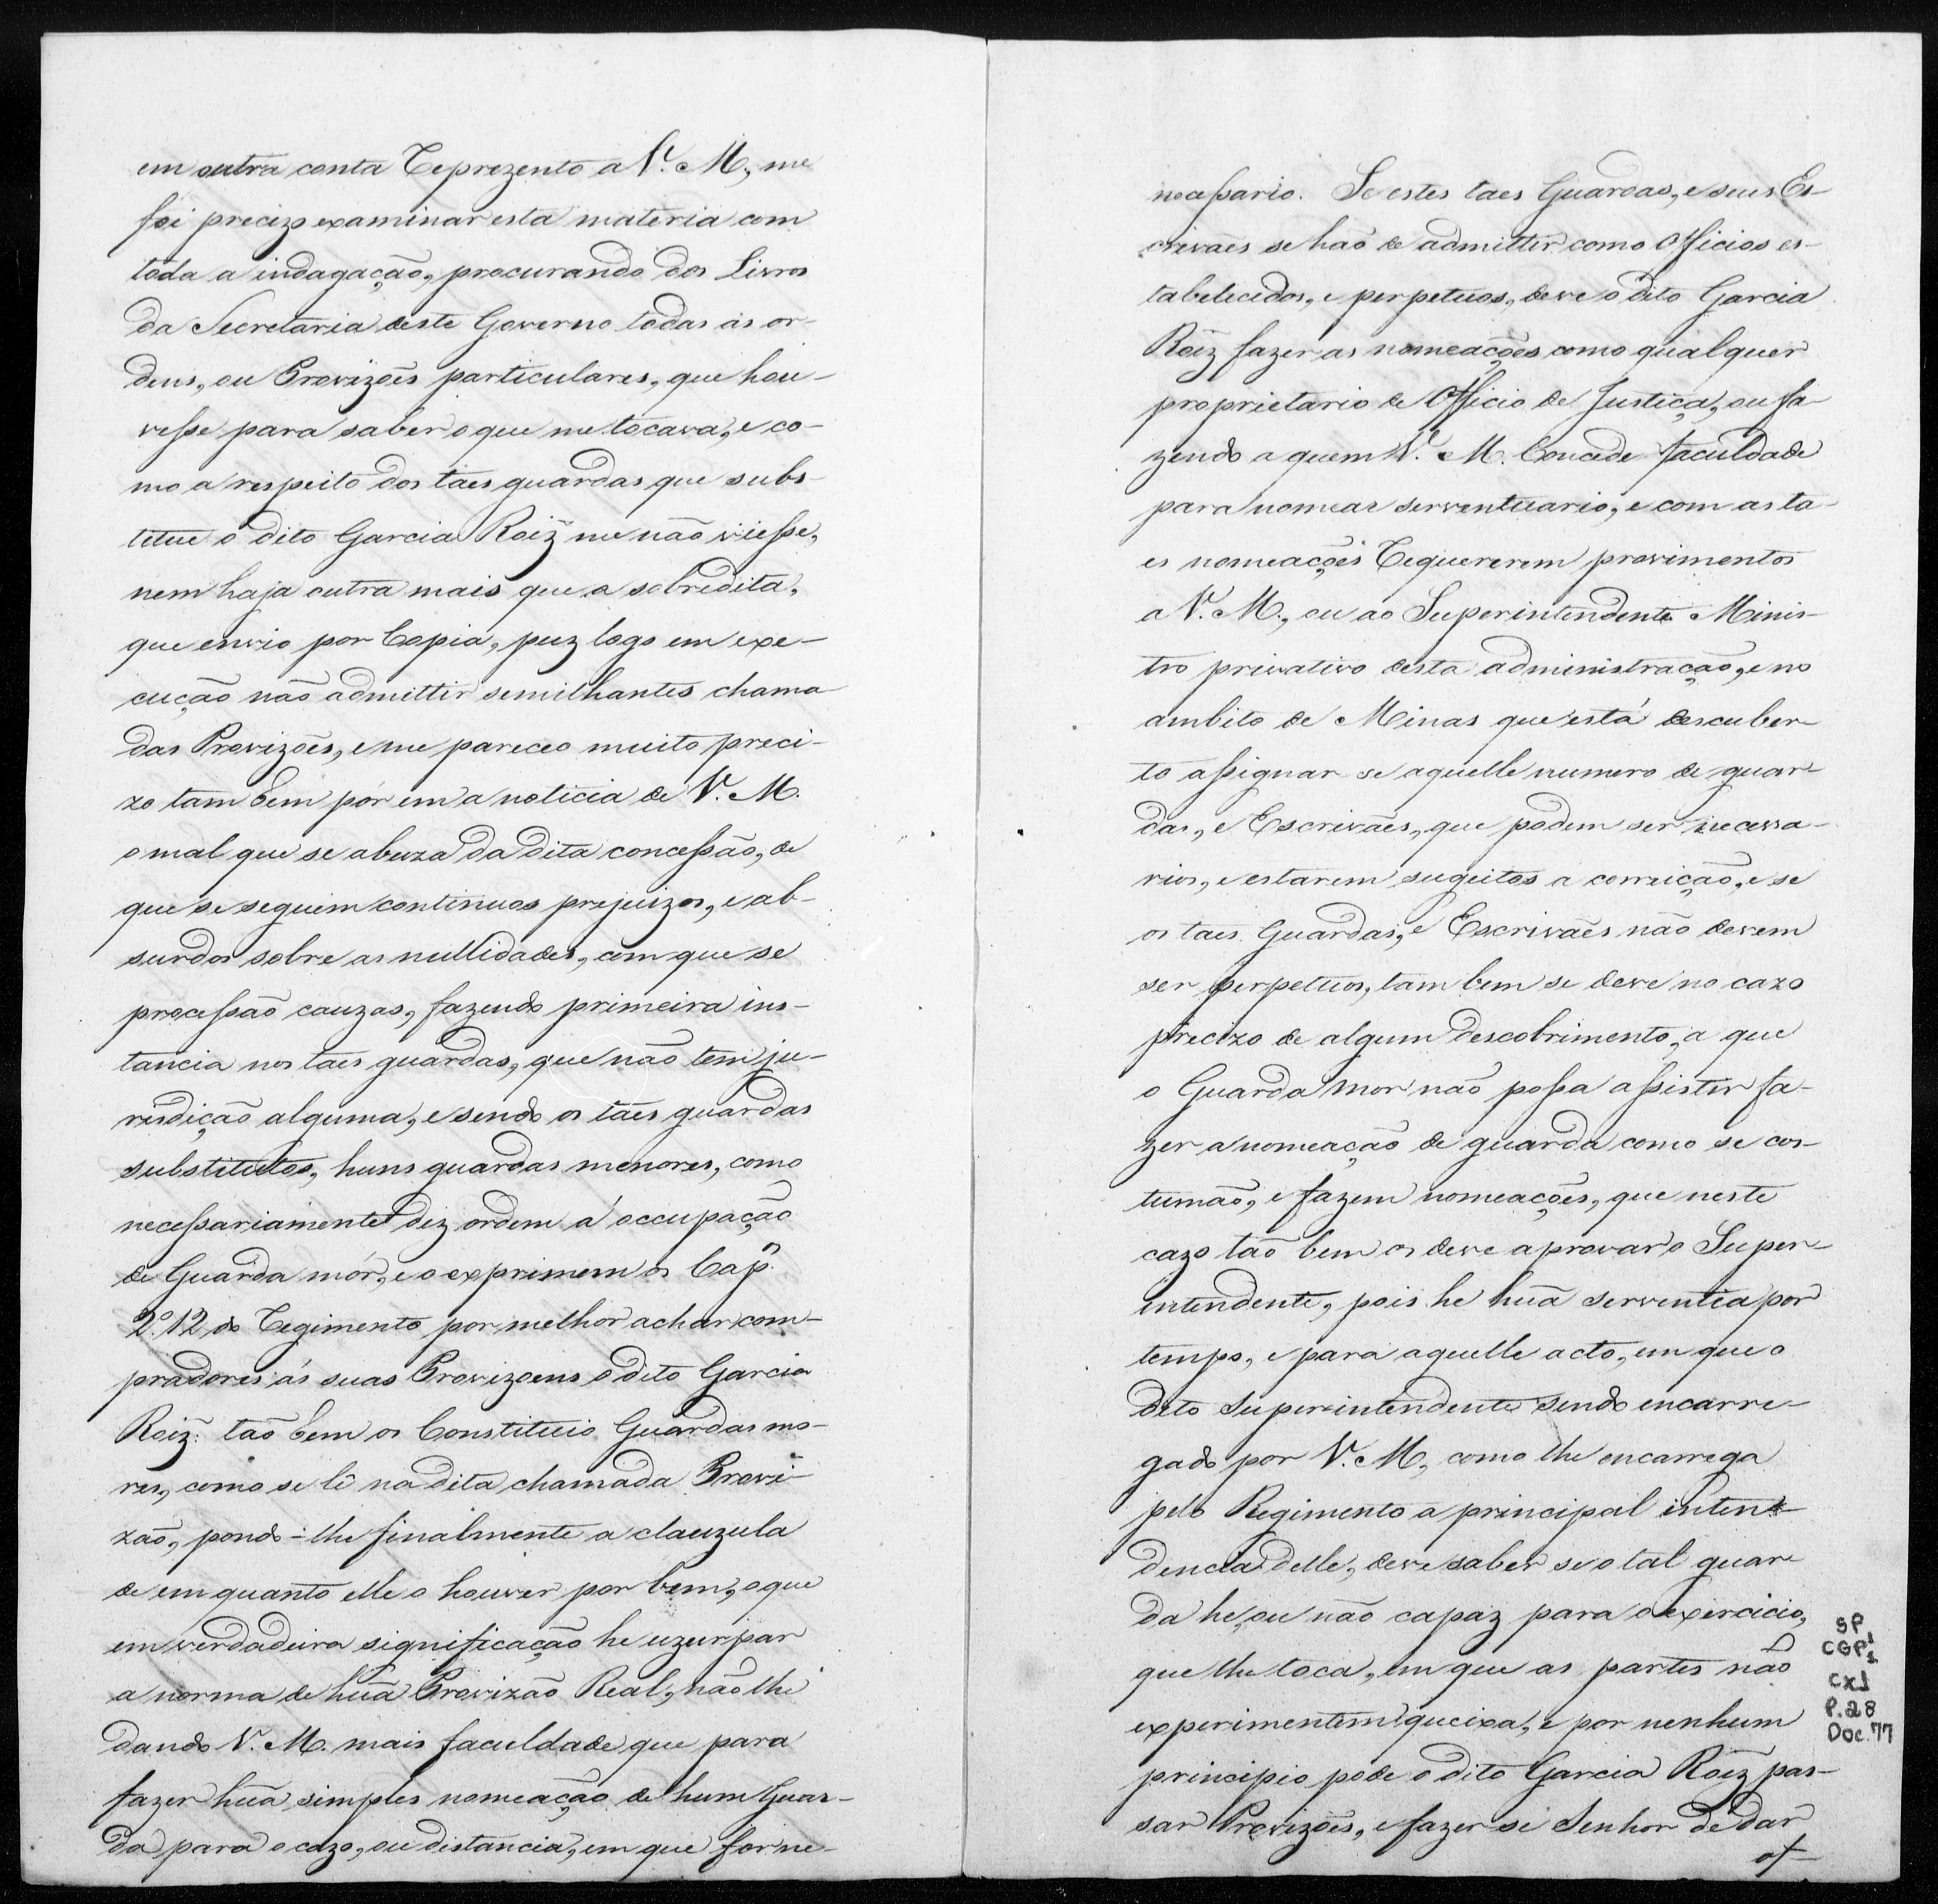 em outra conta Reprezento a V. M., me
foi precizo examinar esta materia com
toda a indagação, procurando dos Livros
da Secretaria deste Governo todas as or-
dens, ou Provizões particulares, que hou-
vesse para saber o que me tocava, e co-
mo a respeito dos taes guardas que subs-
titue o dito Garcia Roiz me não viesse,
nem haja outra mais que a sobredita,
que envio por Copia, puz logo em exe-
cução não admittir semilhantes chama-
das Provizões, e me pareceo muito preci-
zo tam bem pôr em a noticia de V. M.
o mal que se abuza da dita concessão, de
que se seguem continuos prejuizos, e ab-
surdos sobre as nullidades, com que se
processão cauzas, fazendo primeira ins-
tancia nos taes guardas, que não tem ju-
risdição alguma, e sendo os taes guardas
substitutos, huns guardas menores, como
necessariamente diz ordem á occupação
de Guarda mór, e o exprimem os Cap.
2.º 12 do Regimento por melhor achar com-
pradores ás suas Provizoens o dito Garcia
Roiz: tão bem os Constituio Guardas mo-
res, como se lê na dita chamada Provi-
zão, pondo-lhe finalmente a clauzula
de em quanto elle o houver por bem, o que
em verdadeira significação he uzurpar
a norma de huã Provizão Real, não lhe
dando V. M. mais faculdade que para
fazer huã simples nomeação de hum Guar-
da para o cazo, ou distancia, em que for ne-
necessario. Se estes taes Guardas, e seus Es-
crivães se hão de admittir como Officios es-
tabelecidos, e perpetuos, deve o dito Garcia
Roiz fazer as nomeações como qualquer
proprietario de Officio de Justiça, ou fa-
zendo a quem V. M. Concede faculdade
para nomear serventuario, e com as ta-
es nomeações Requererem provimentos
a V. M., ou ao Superintendente Minis-
tro privativo desta administração, e no
ambito de Minas que está descuber-
to assignar se aquelle numero de guar-
das, e Escrivães, que podem ser necessa-
rios, e estarem sugeitos a correição, e se
os taes Guardas, e Escrivães não devem
ser perpetuos, tam bem se deve no cazo
precizo de algum descobrimento, a que
o Guarda mor não possa assistir fa-
zer a nomeação de guarda como se cos-
tumão, e fazem nomeações, que neste
cazo tão bem os deve aprovar o Super-
intendente, pois he huã serventia por
tempo, e para aquelle acto, em que o
dito Superintendente sendo encarre-
gado por V. M., como lhe encarrega
pelo Regimento a principal inten-
dencia delle, deve saber se o tal guar-
da he, ou não capaz para o exercicio,
que lhe toca, em que as partes não
experimentem queixa, e por nenhum
principio pode o dito Garcia Roiz pas-
sar Provizões, e fazer se Senhor de dar
of-
SP
CGP1
cx1
P.28
Doc.77